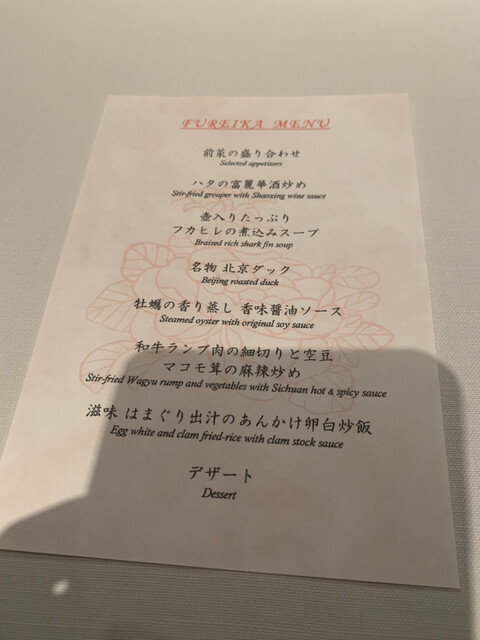 FUREIKA MENU
前菜の盛り合わせ
Selected appetizers
ハタの富麗華酒炒め
Stir-fried grouper with Shaoxing wine sauce
壺入りたっぷり
フカヒレの煮込みスープ
Braised rich shark fin soup
名物 北京ダック
Beijing roasted duck
牡蠣の香り蒸し 香味醤油ソース
Steamed oyster with original soy sauce
和牛ランプ肉の細切りと空豆
マコモ茸の麻辣炒め
Stir-fried Wagyu rump and vegetables with Sichuan hot & spicy sauce
滋味 はまぐり出汁のあんかけ卵白炒飯
Egg white and clam fried-rice with clam stock sauce
デザート
Dessert